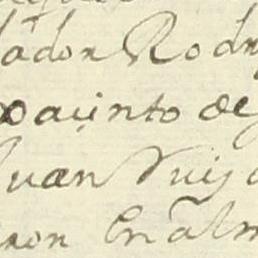 ador Rodr
xaçinto de
Juan Ruiz
ron En alm